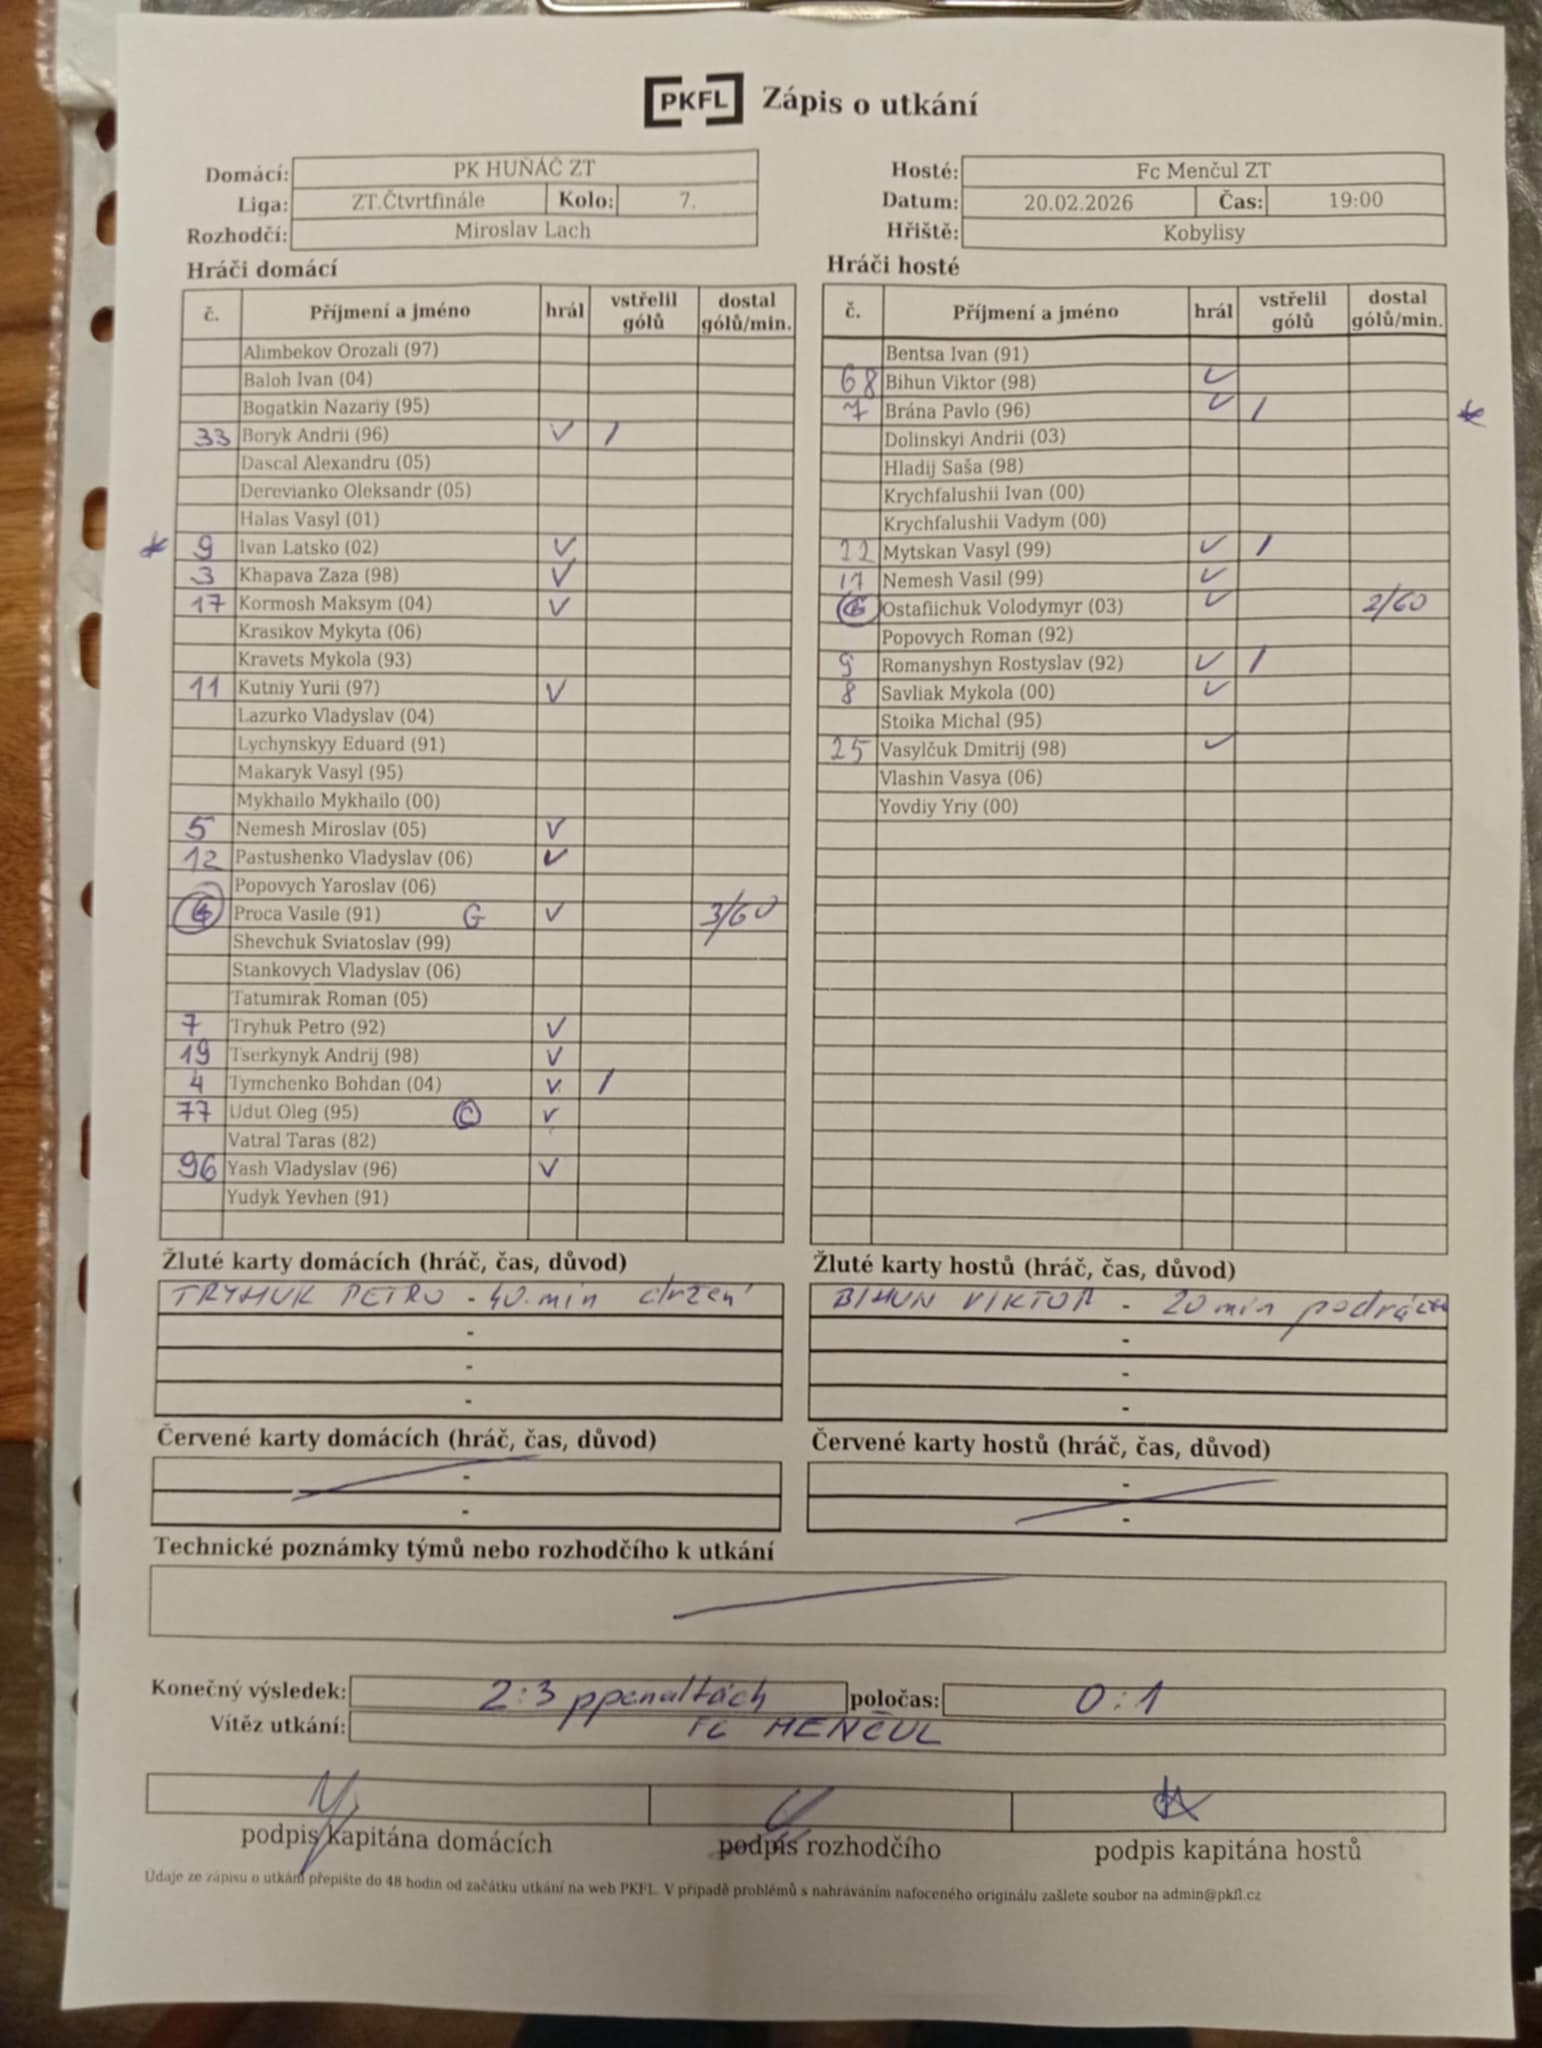 PKFL Zápis o utkání
Domácí: PK HUŇÁČ ZT Hosté: Fc Menčul ZT
Liga: ZT.Čtvrtfinále Kolo: 7. Datum: 20.02.2026 Čas: 19:00
Rozhodčí: Miroslav Lach Hřiště: Kobylisy
Hráči domácí
č. Příjmení a jméno hrál vstřelil gólů dostal gólů/min.
Alimbekov Orozali (97)
Baloh Ivan (04)
Bogatkin Nazariy (95)
33 Boryk Andrii (96) V /
Dascal Alexandru (05)
Derevianko Oleksandr (05)
Halas Vasyl (01)
* 9 Ivan Latsko (02) V
3 Khapava Zaza (98) V
17 Kormosh Maksym (04) V
Krasikov Mykyta (06)
Kravets Mykola (93)
11 Kutniy Yurii (97) V
Lazurko Vladyslav (04)
Lychynskyy Eduard (91)
Makaryk Vasyl (95)
Mykhailo Mykhailo (00)
5 Nemesh Miroslav (05) V
12 Pastushenko Vladyslav (06) V
Popovych Yaroslav (06)
G Proca Vasile (91) G V 3/60
Shevchuk Sviatoslav (99)
Stankovych Vladyslav (06)
Tatumirak Roman (05)
7 Tryhuk Petro (92) V
19 Tserkynyk Andrij (98) V
4 Tymchenko Bohdan (04) V /
77 Udut Oleg (95) C V
Vatral Taras (82)
96 Yash Vladyslav (96) V
Yudyk Yevhen (91)
Hráči hosté
č. Příjmení a jméno hrál vstřelil gólů dostal gólů/min.
Bentsa Ivan (91)
68 Bihun Viktor (98) ✓
7 Brána Pavlo (96) ✓ / *
Dolinskyi Andrii (03)
Hladij Saša (98)
Krychfalushii Ivan (00)
Krychfalushii Vadym (00)
22 Mytskan Vasyl (99) ✓ /
17 Nemesh Vasil (99) ✓
G Ostafiichuk Volodymyr (03) ✓ 2/60
Popovych Roman (92)
9 Romanyshyn Rostyslav (92) ✓ /
8 Savliak Mykola (00) ✓
Stoika Michal (95)
25 Vasylčuk Dmitrij (98) ✓
Vlashin Vasya (06)
Yovdiy Yriy (00)
Žluté karty domácích (hráč, čas, důvod)
TRYHUK PETRO - 40.min držení
-
-
-
Žluté karty hostů (hráč, čas, důvod)
BIHUN VIKTOR - 20 min
-
-
-
Červené karty domácích (hráč, čas, důvod)
-
-
Červené karty hostů (hráč, čas, důvod)
-
-
Technické poznámky týmů nebo rozhodčího k utkání
Konečný výsledek: 2:3 ppenaltách poločas: 0:1
Vítěz utkání: FC MENČUL
podpis kapitána domácích podpis rozhodčího podpis kapitána hostů
Údaje ze zápisu o utkání přepište do 48 hodin od začátku utkání na web PKFL. V případě problémů s nahráváním nafoceného originálu zašlete soubor na admin@pkfl.cz